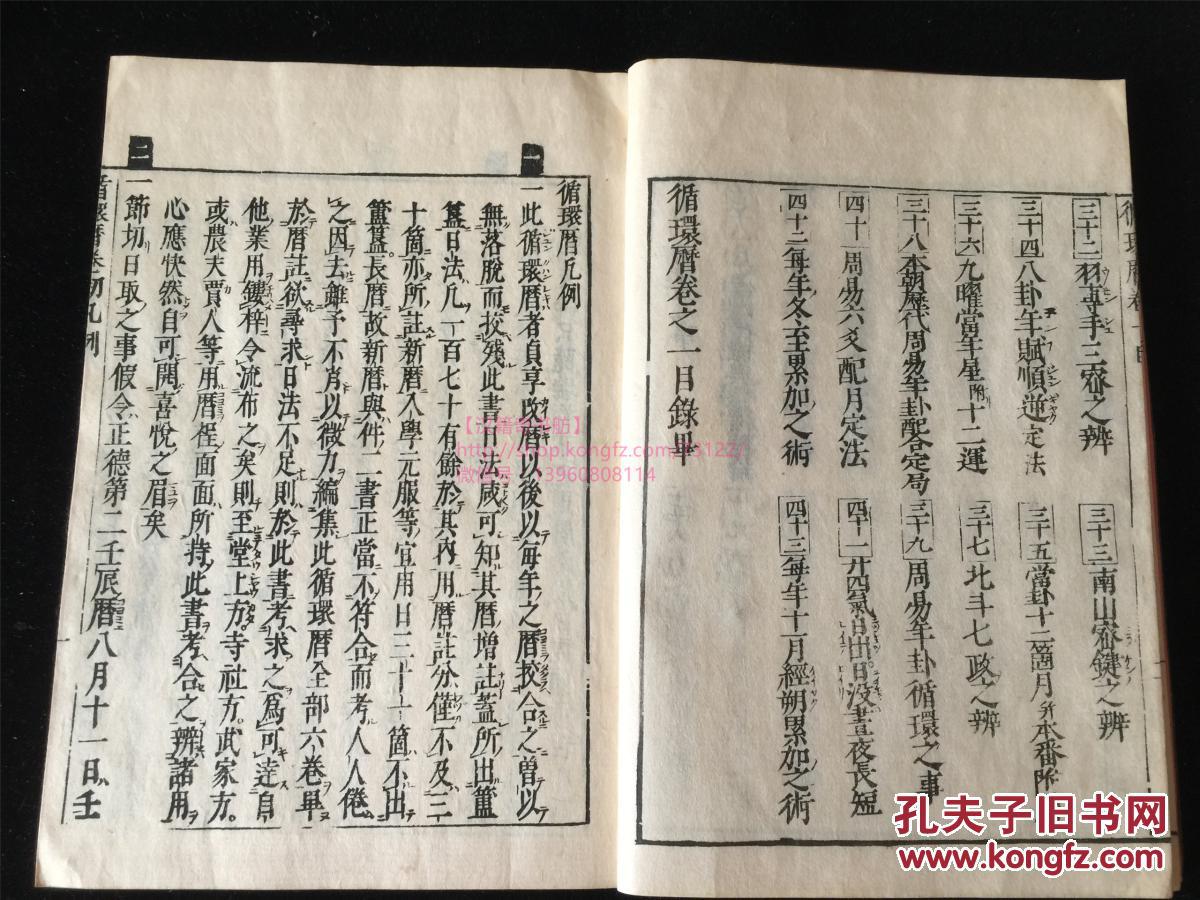 三十二羽専手三密之辨
三十三南山密鍵之辨
三十四八卦年賦順逆定法
三十五當卦十二箇月所本番附
三十六九曜當年星附十二運
三十七北斗七政之辨
三十八本朝歷代周易年卦配合定局
三十九周易年卦循環之事
四十周易六爻配月定法
四十一廿四氣日出日没晝夜長短
四十二每年冬至累加之術
四十三每年十一月經朔累加之術
循環曆卷之一目錄畢
一
循環曆凡例
一此循環曆者貞享改曆以後以每年之曆挍合之曾以
無落脫而挍殘此書日法咸可知其曆增註蓋所出簠
簋日法凡一百七十有餘於其內用曆註分僅不及三
十箇亦所註新曆入學元服等宜用日二十一箇不出
簠簋長曆故新曆與件二書正當不符合而考人人倦
之因去雖予不肖以微力編集此循環曆全部六卷畢
於曆註欲尋求日法不足則於此書考求之為可達自
他業用鏤梓令流布之矣則至堂上方寺社方武家方
或農夫賈人等用曆程面面所持此書考合之辨諸用
心應快然自可開喜悅之眉矣
一節切日取之事假令正德第二壬辰曆八月十一日壬
二
循環曆卷初凡例
孔夫子旧书网
www.kongfz.com
http://shop.kongfz.com/23122/
微信号：13960808114